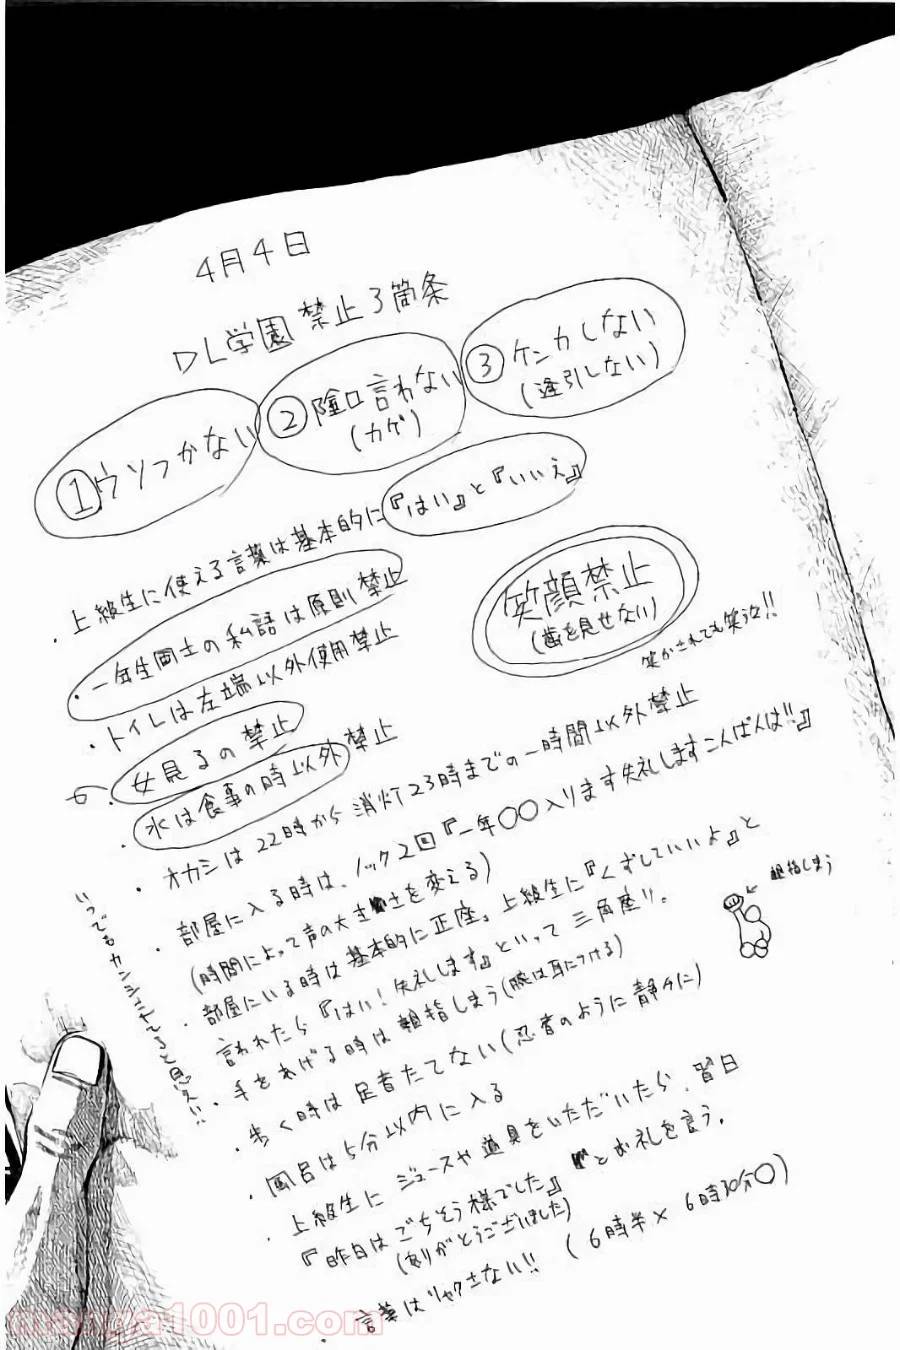 4月4日
DL学園 禁止3箇条
①ウソつかない
②陰口言わない
(カゲ)
③ケンカしない
(逢引しない)
・上級生に使える言葉は基本的に『はい』と『いいえ』
・一年生同士の私語は原則禁止
・トイレは左端以外使用禁止
・女見るの禁止
・水は食事の時以外禁止
笑顔禁止
(歯を見せない)
笑かされても笑うな!!
・オカシは22時から消灯23時までの一時間以外禁止
・部屋に入る時は、ノック2回『一年〇〇入ります失礼しますこんばんは!!』
(時間によって声の大きさを変える)
・部屋にいる時は基本的に正座。上級生に『くずしていいよ』と
言われたら『はい!失礼します』といって三角座り。
・手をあげる時は親指しまう(腕は耳につける)
親指しまう
・歩く時は足音たてない(忍者のように静かに)
・風呂は5分以内に入る
・上級生にジュースや道具をいただいたら、翌日
『昨日はごちそう様でした』とお礼を言う。
(ありがとうございました)
・言葉はリャクさない!! (6時半× 6時30分〇)
いつでもカンシされてると思え!!
manga1001.com